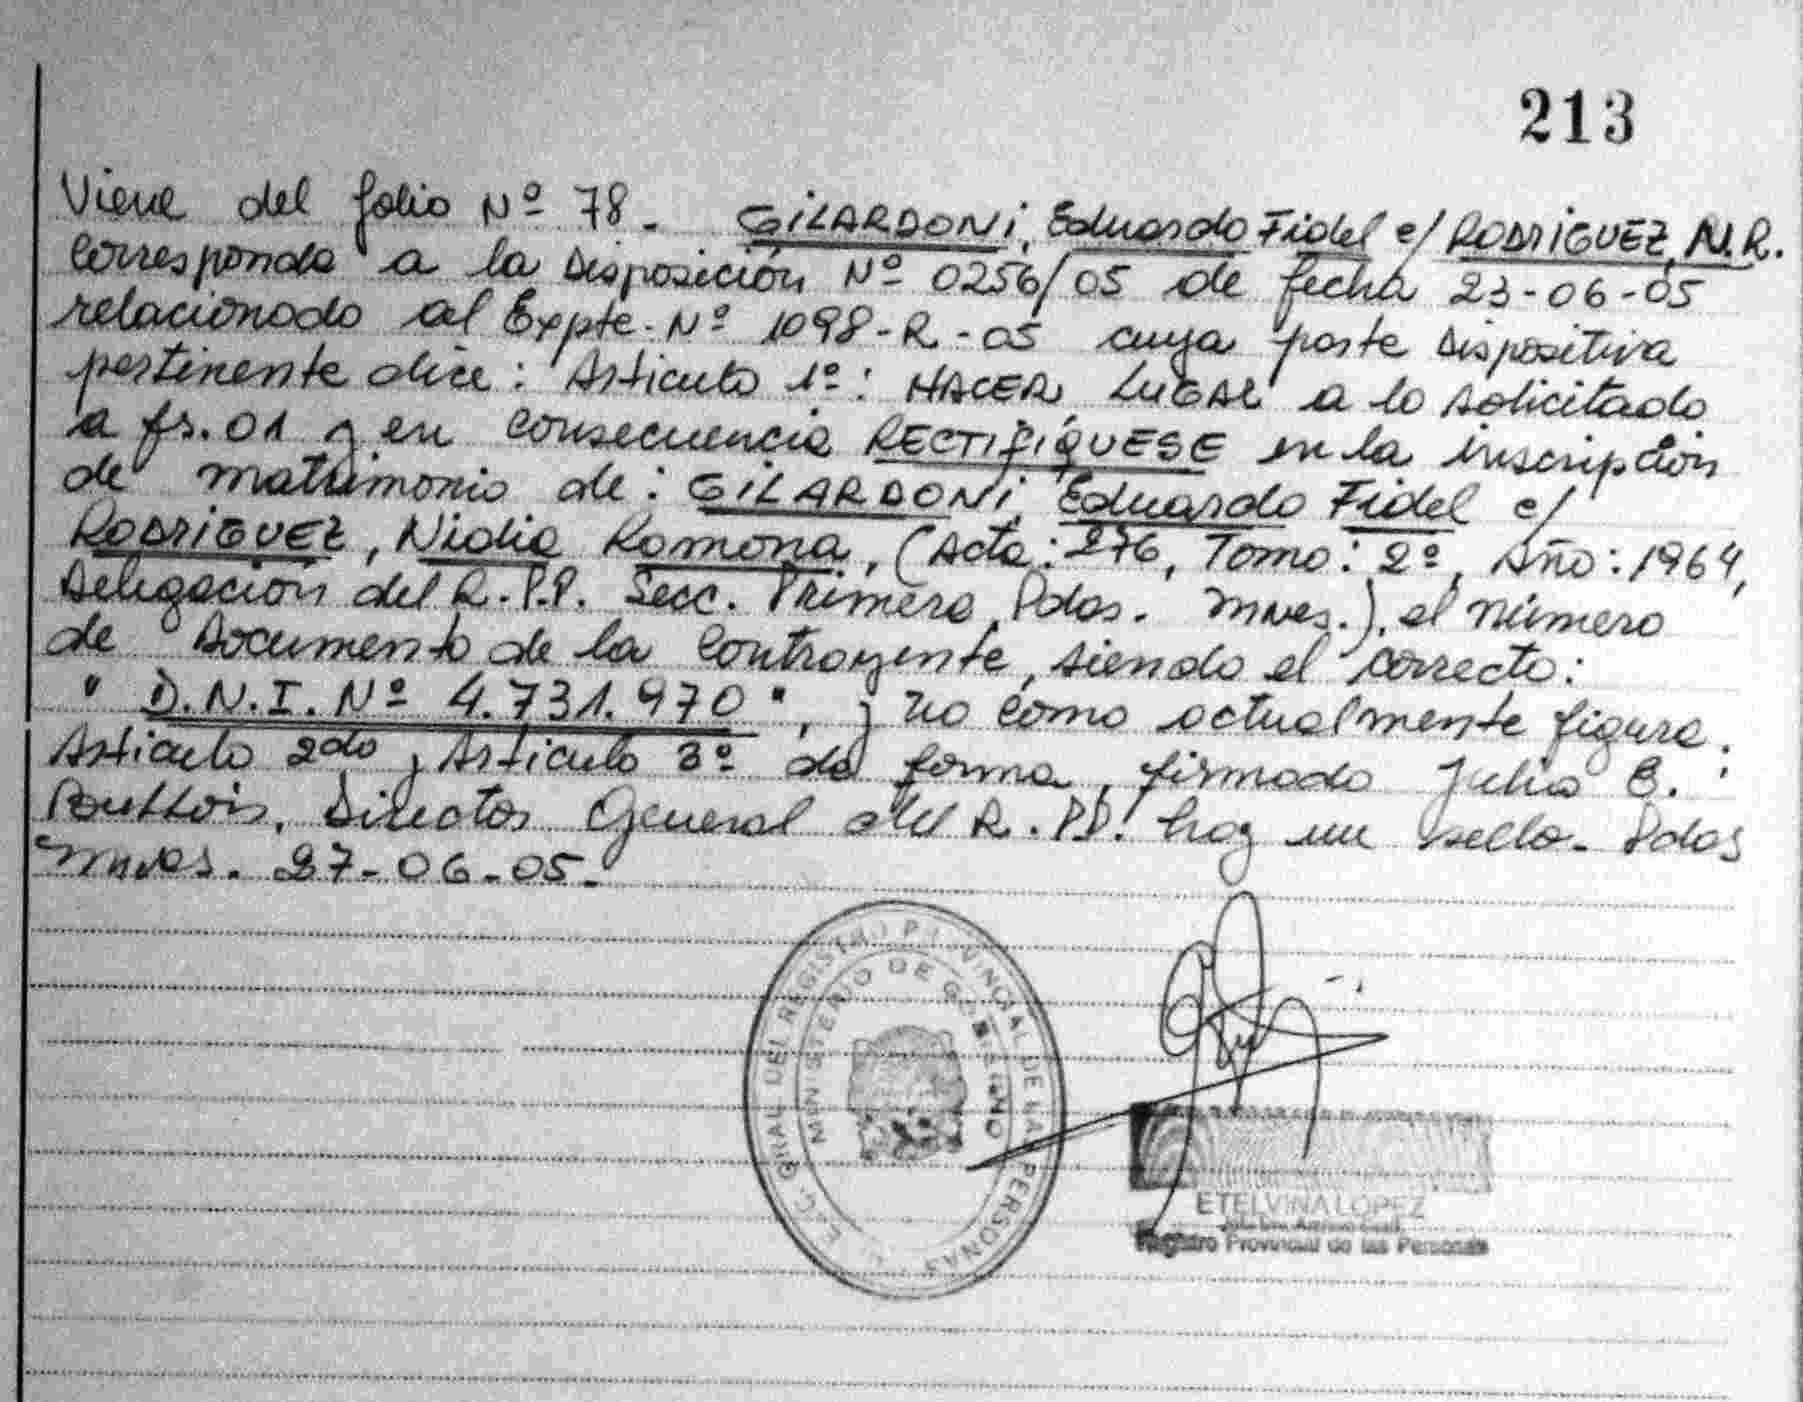 213
Viene del folio Nº 78- GILARDONI, Eduardo Fidel c/ RODRIGUEZ, N.R.
Corresponde a la Disposición Nº 0256/05 de fecha 23-06-05
relacionado al Expte. Nº 1098-R-05 cuya parte dispositiva
pertinente dice: Artículo 1º: HACER LUGAR a lo solicitado
a fs. 01 y en consecuencia RECTIFÍQUESE en la inscripción
de matrimonio de: GILARDONI, Eduardo Fidel c/
RODRIGUEZ, Nidia Ramona, (Acta: 276, Tomo: 2º, Año: 1964,
Delegación del R.P.P. Secc. Primera, Pdas. Mnes.), el número
de Documento de la Contrayente, siendo el correcto:
"D.N.I. Nº 4.731.970", y no como actualmente figura.
Artículo 2do y Artículo 3º de forma, firmado Julio
Director General del R.P.P. hay un sello- Pdas
Mnes. 27-06-05-
GRAL DEL REGISTRO PROVINCIAL DE LAS PERSONAS
MINISTERIO DE GOBIERNO
ETELVINA LOPEZ
Registro Provincial de las Personas